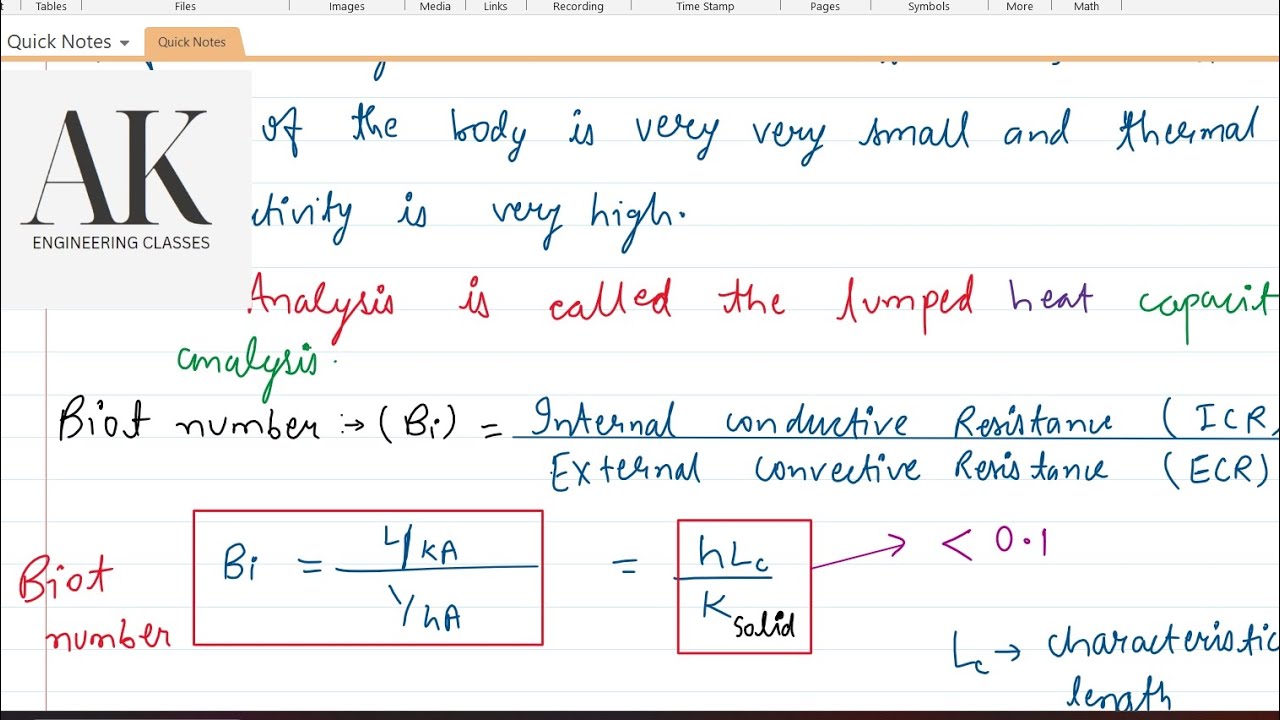 Tables Files Images Media Links Recording Time Stamp Pages Symbols More Math
Quick Notes Quick Notes
AK
ENGINEERING CLASSES
of the body is very very small and thermal
ctivity is very high.
Analysis is called the lumped heat capacit
analysis.
Biot number :→ (Bi) = Internal conductive Resistance (ICR)
External convective Resistance (ECR)
Biot number
Bi = L/KA / 1/hA = hLc / K solid → < 0.1
Lc → characteristic
length